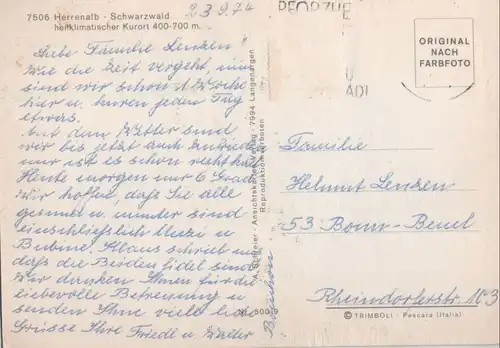 7506 Herrenalb - Schwarzwald
heilklimatischer Kurort 400-700 m
23.9.74
ORIGINAL
NACH
FARBFOTO
Liebe Familie Lenzen!
Wie die Zeit vergeht, nun
sind wir schon 1 Woche
hier u. kuren jeden Tag
etwas.
Mit dem Wetter sind
wir bis jetzt auch zufrieden
nur ist es schon recht kühl
Heute morgen nur 6 Grad
Wir hoffen, daß Sie alle
gesund u. munter sind
einschließlich Muzi u.
Bubine. Klaus schrieb uns
daß die Beiden fidel sind
Wir danken Ihnen für die
liebevolle Betreuung u.
senden Ihnen viele liebe
Grüsse Ihre Friedl u. Walter
Ansichtskartenverlag - 7994 Langenargen
Reproduktion verboten
Familie
Helmut Lenzen
53 Bonn-Beuel
Rheindorferstr. 103
© TRIMBOLI - Pescara (Italia)